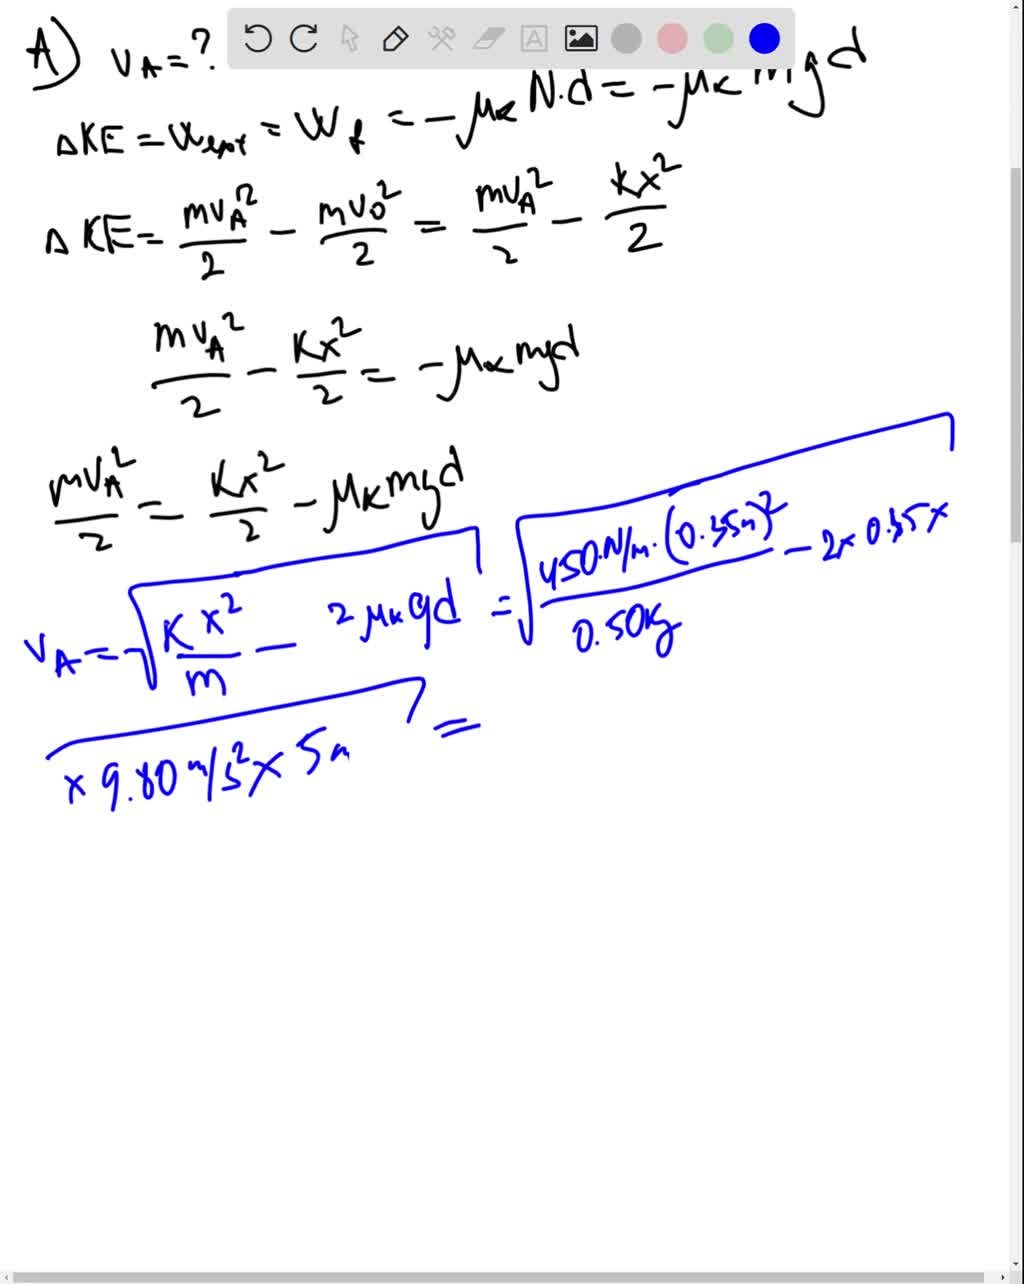 A) v_A = ?
ΔKE = W_ext = W_f = -μ_k N·d = -μ_k mgd
ΔKE = mv_A²/2 - mv_0²/2 = mv_A²/2 - kx²/2
mv_A²/2 - kx²/2 = -μ_k mgd
mv_A²/2 = kx²/2 - μ_k mgd
v_A = √(kx²/m - 2μ_k gd) = √(450·N/m·(0.35m)²/0.50kg - 2×0.35×
×9.80 m/s² × 5m) =